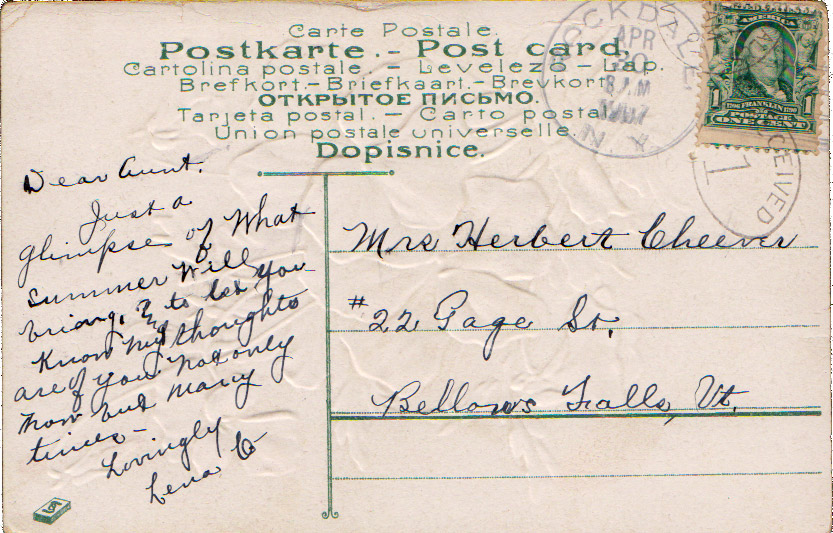 Carte Postale.
Postkarte. – Post card.
Cartolina postale. – Levelezö – Lap.
Brefkort.–Briefkaart.–Brevkort
ОТКРЫТОЕ ПИСЬМО.
Tarjeta postal. – Carto postal
Union postale universelle.
Dopisnice.
ROCKDALE
APR
8 AM
1907
N.Y.
AMERICA
1
1
FRANKLIN
POSTAGE
ONE CENT
RECEIVED
1
Dear Aunt.
Just a
glimpse of What
Summer Will
bring, & to let you
Know my thoughts
are of you not only
now but many
times –
Lovingly
Lena
Mrs Herbert Cheever
#22 Gage St.
Bellows Falls, Vt.